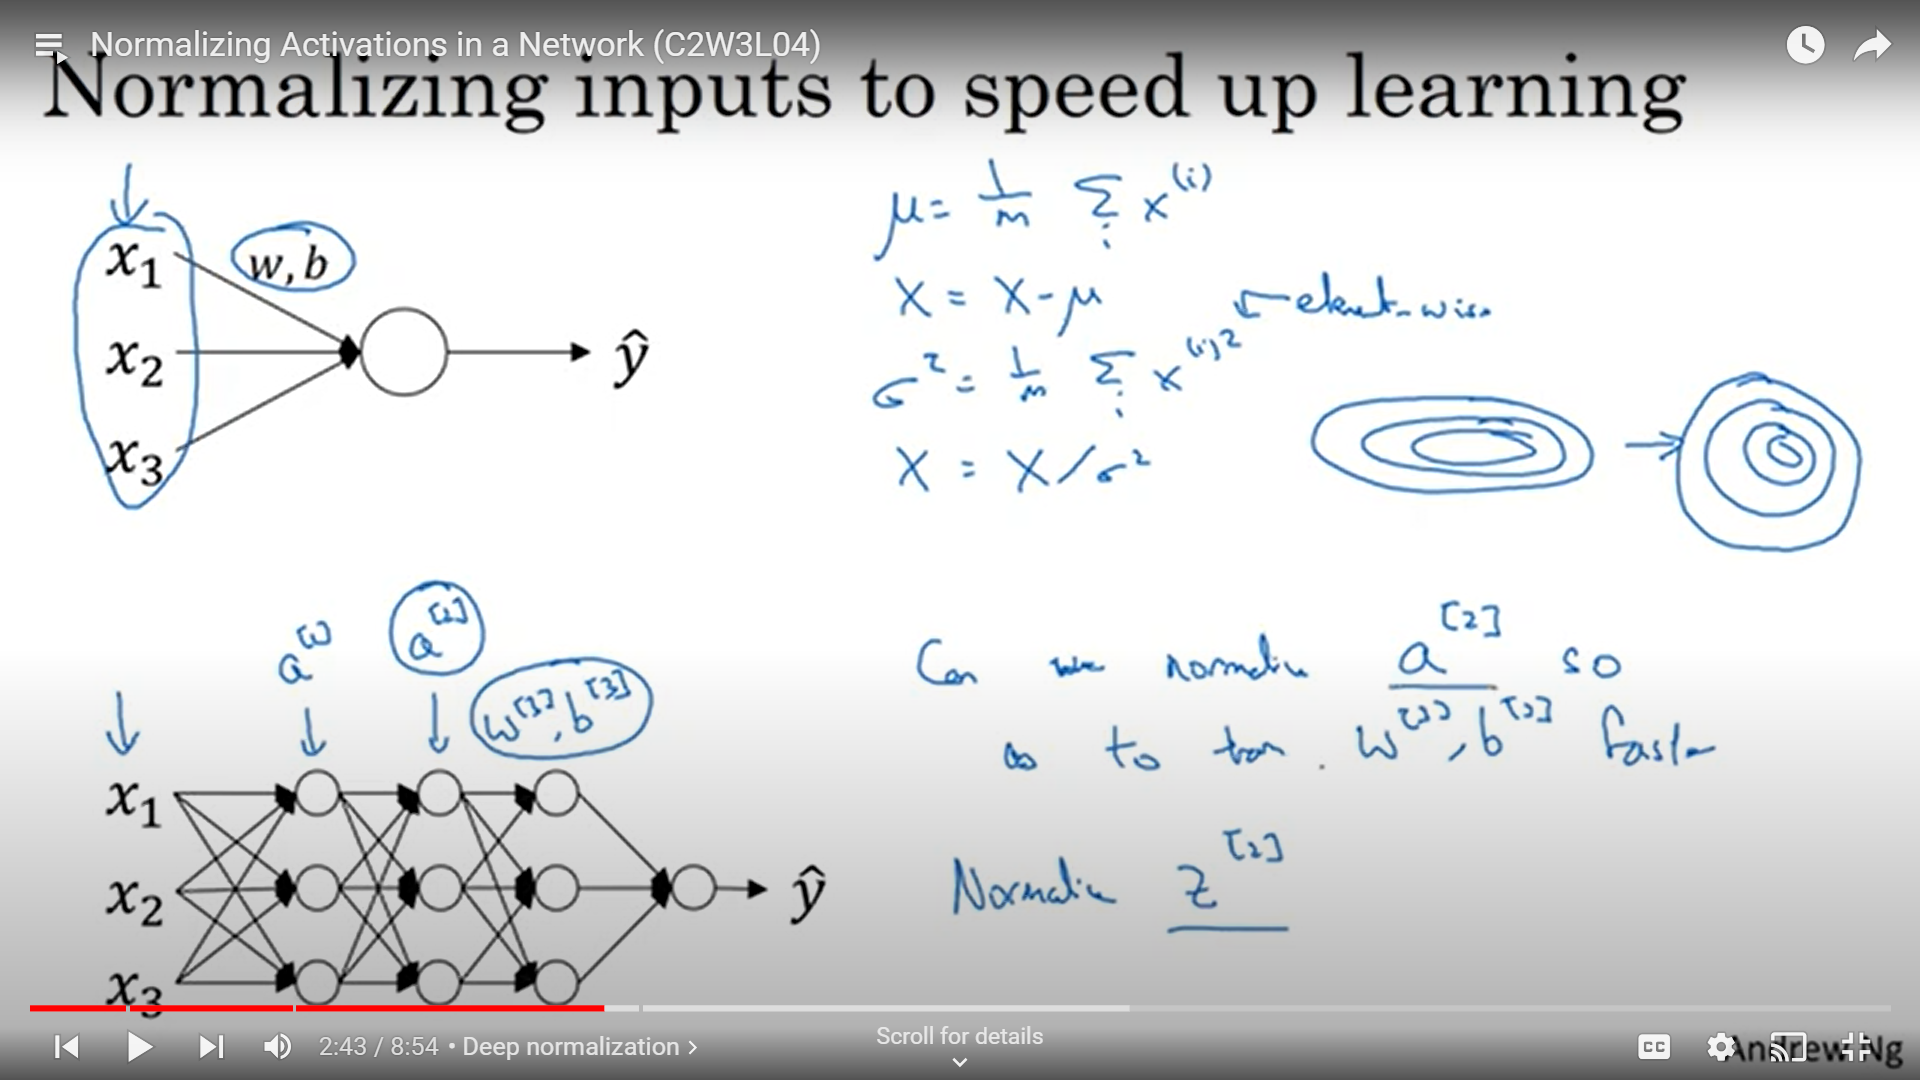 Normalizing Activations in a Network (C2W3L04)
Normalizing inputs to speed up learning
x₁
w, b
x₂
ŷ
x₃
μ = 1/m Σᵢ x⁽ⁱ⁾
X = X - μ
σ² = 1/m Σᵢ x⁽ⁱ⁾² ← element-wise
X = X/σ²
a[1]
a[2]
w[3], b[3]
x₁
x₂
ŷ
x₃
Can we normalize a[2] so
as to train w[3], b[3] faster
Normalize z[2]
2:43 / 8:54 • Deep normalization >
Scroll for details
CC
Andrew Ng